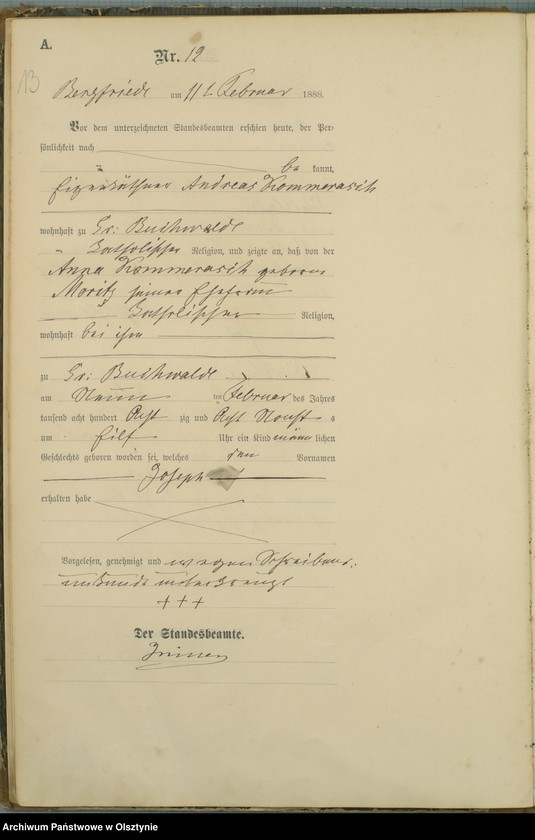 A.
Nr. 12
13
Bergfriede am 11 t. Februar 1888.
Vor dem unterzeichneten Standesbeamten erschien heute, der Per-
sönlichkeit nach be kannt,
Eigenkäthner Andreas Kommerasch
wohnhaft zu Gr: Buchwalde
katholischer Religion, und zeigte an, daß von der
Anna Kommerasch geborene
Moritz seiner Ehefrau
katholischer Religion,
wohnhaft bei ihm
zu Gr: Buchwalde
am Neun ten Februar des Jahres
tausend acht hundert Acht zig und Acht Nachts
um Eilf Uhr ein Kind männ lichen
Geschlechts geboren worden sei, welches den Vornamen
Joseph
erhalten habe
Vorgelesen, genehmigt und wegen Schreibens-
unkunde unterkreuzt
+++
Der Standesbeamte.
Archiwum Państwowe w Olsztynie